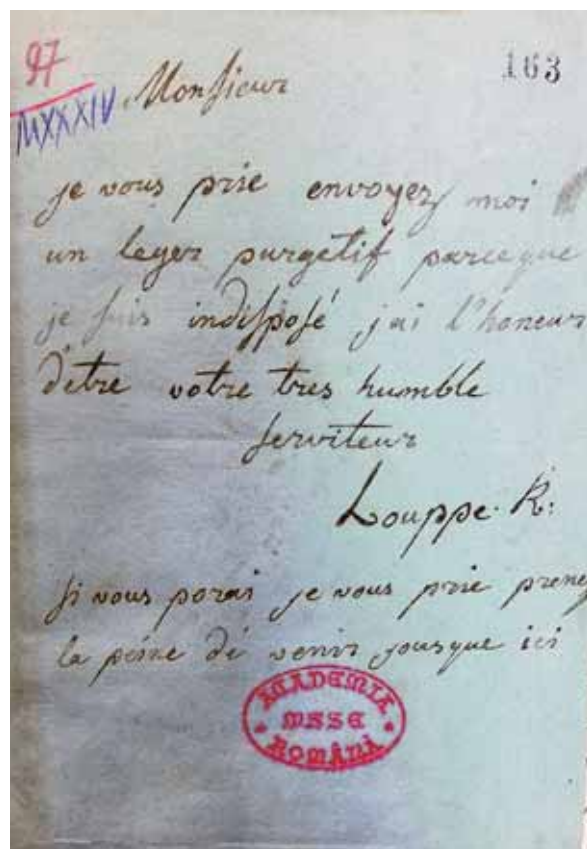 97
163
MXXXIV
Monsieur
je vous prie envoyez moi
un leger purgetif parceque
je suis indisposé j'ai l'honeur
d'etre votre tres humble
serviteur
Louppe. R:
Si vous porai je vous prie prenez
la peine dé venir jousque ici
ACADEMIA
MSSE
ROMÂNĂ